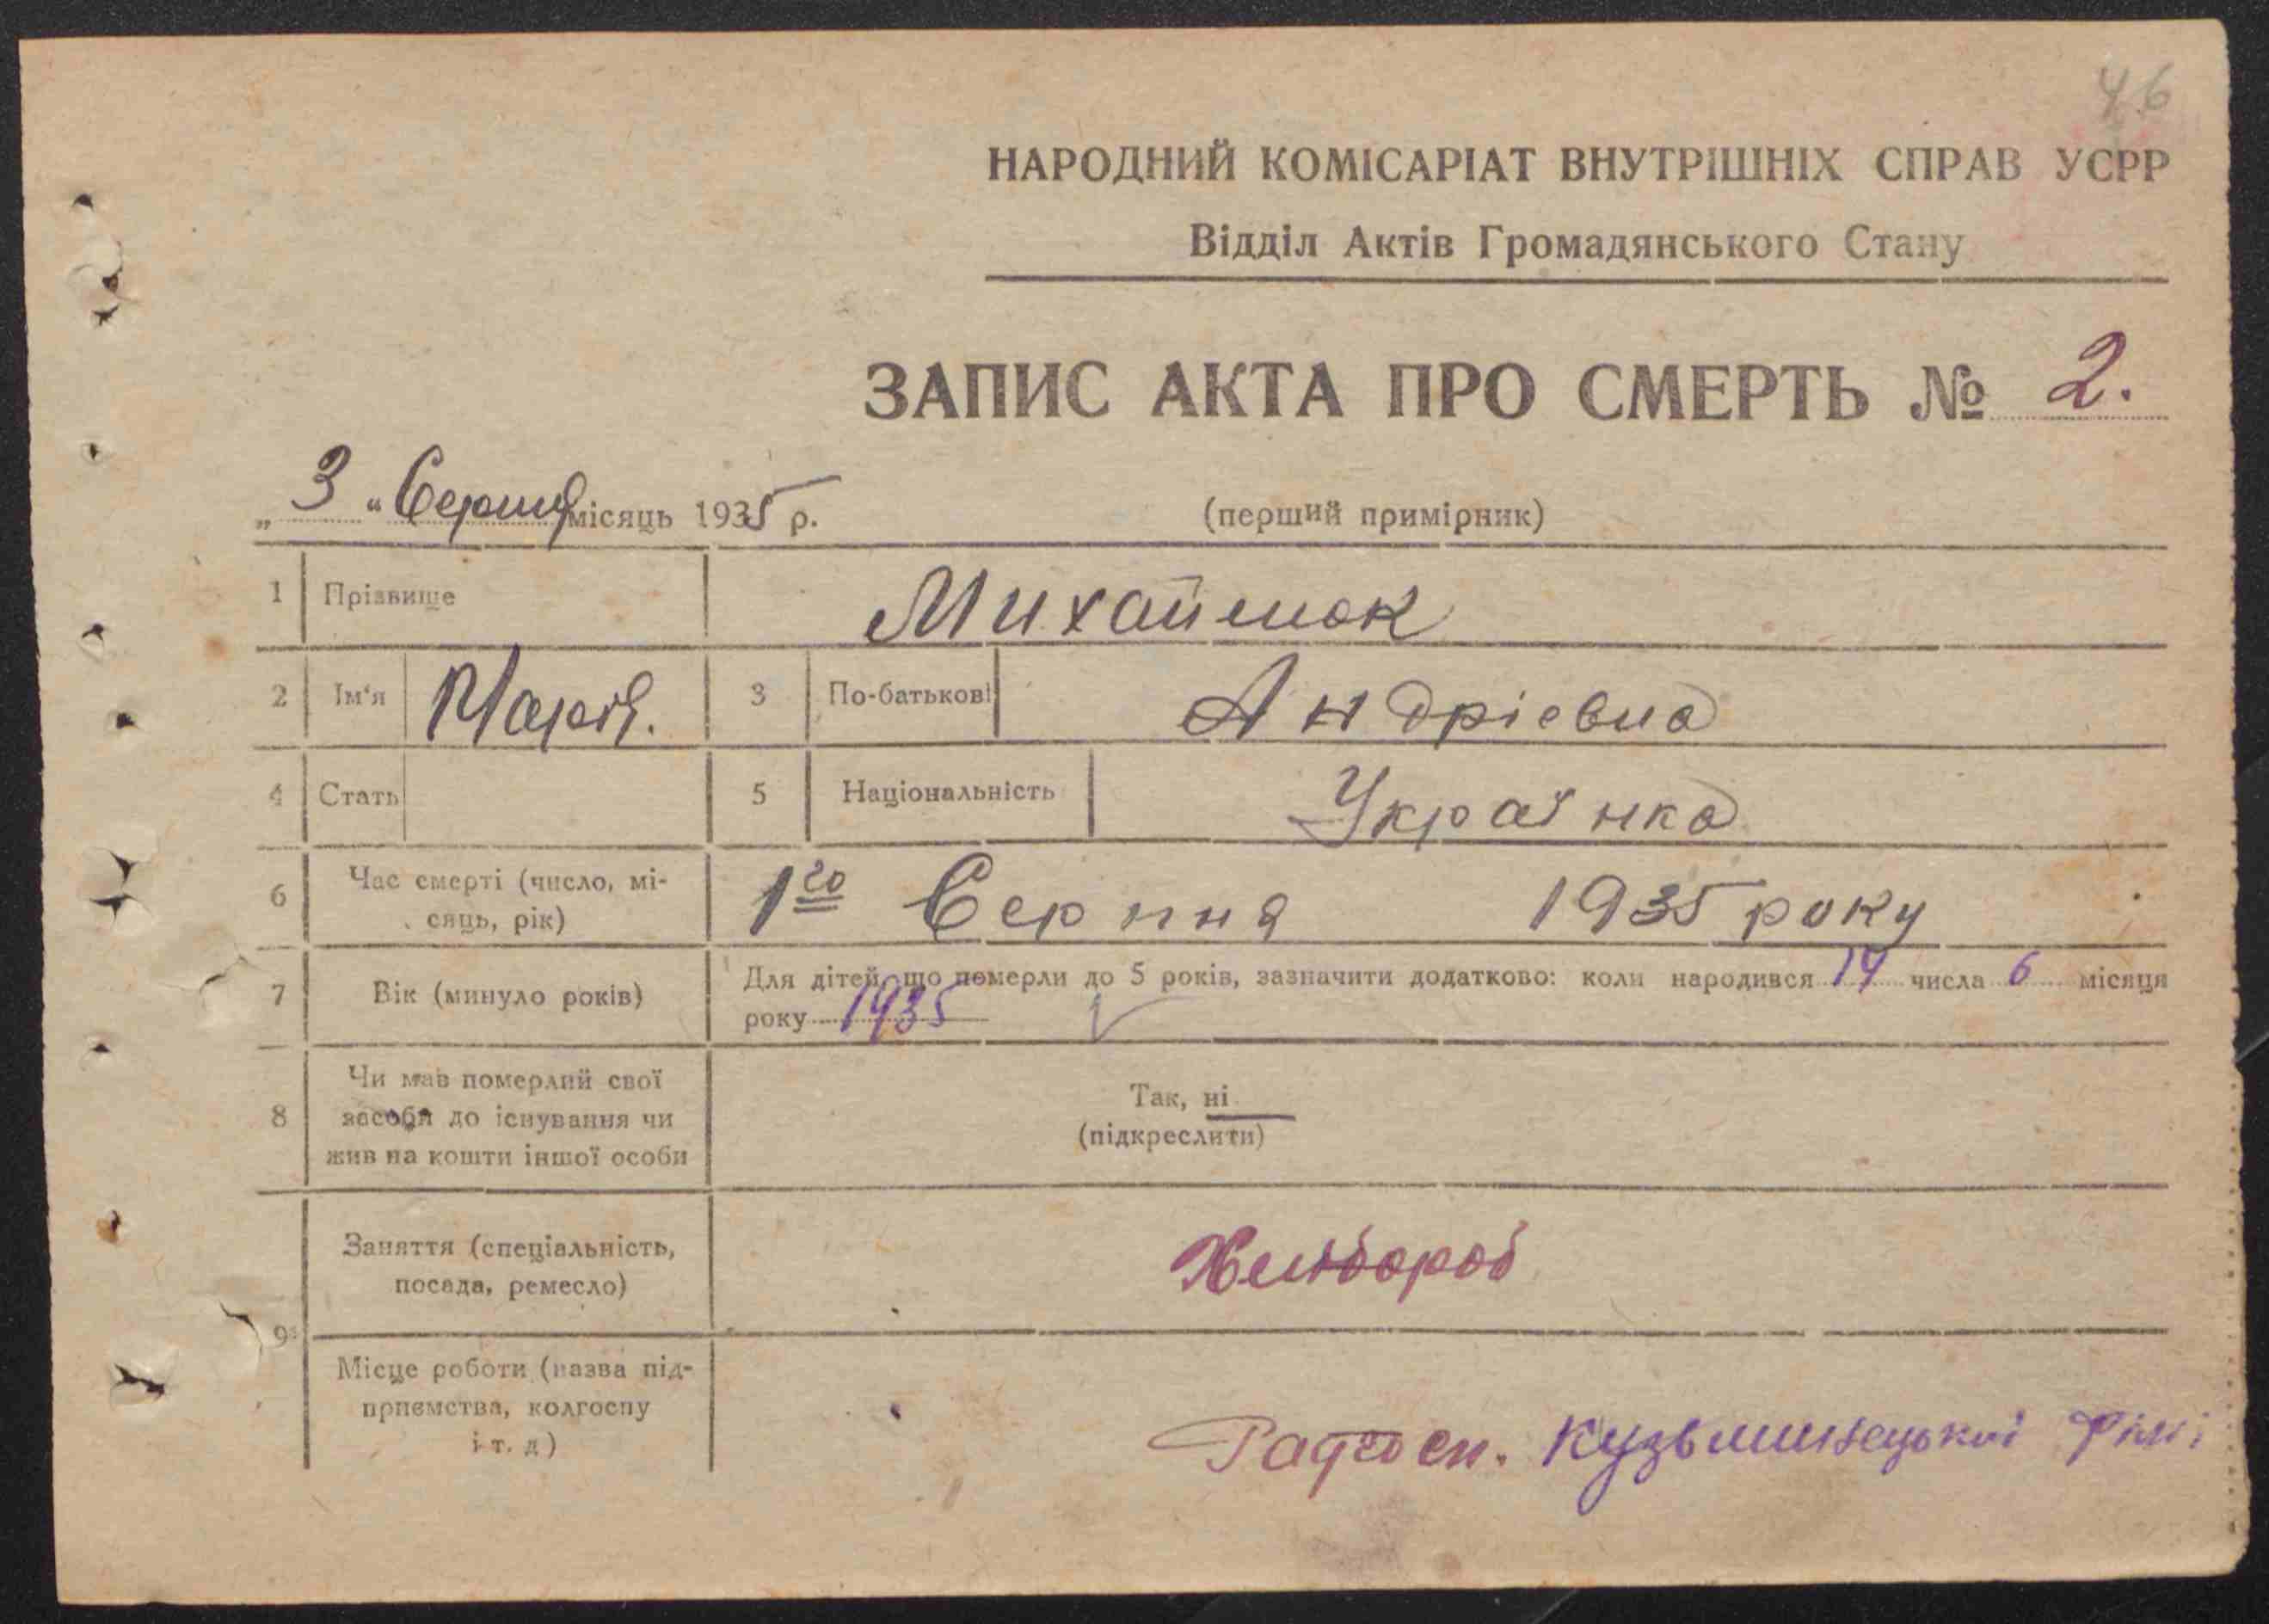 46
НАРОДНИЙ КОМІСАРІАТ ВНУТРІШНІХ СПРАВ УСРР
Відділ Актів Громадянського Стану
ЗАПИС АКТА ПРО СМЕРТЬ № 2.
„ 3 “ Серпня місяць 1935 р.
(перший примірник)
1 Прізвище Михайлюк
2 Ім'я Марія. 3 По-батькові Андрієвна
4 Стать 5 Національність Українка
6 Час смерті (число, мі-
сяць, рік) 1го Серпня 1935 року
7 Вік (минуло років) Для дітей, що померли до 5 років, зазначити додатково: коли народився числа 6 місяця
року 1935
8 Чи мав померлий свої
засоби до існування чи
жив на кошти іншої особи
Так, ні
(підкреслити)
9 Заняття (спеціальність,
посада, ремесло) Хлібороб
Місце роботи (назва під-
приємства, колгоспу
і т. д) Радгосп.